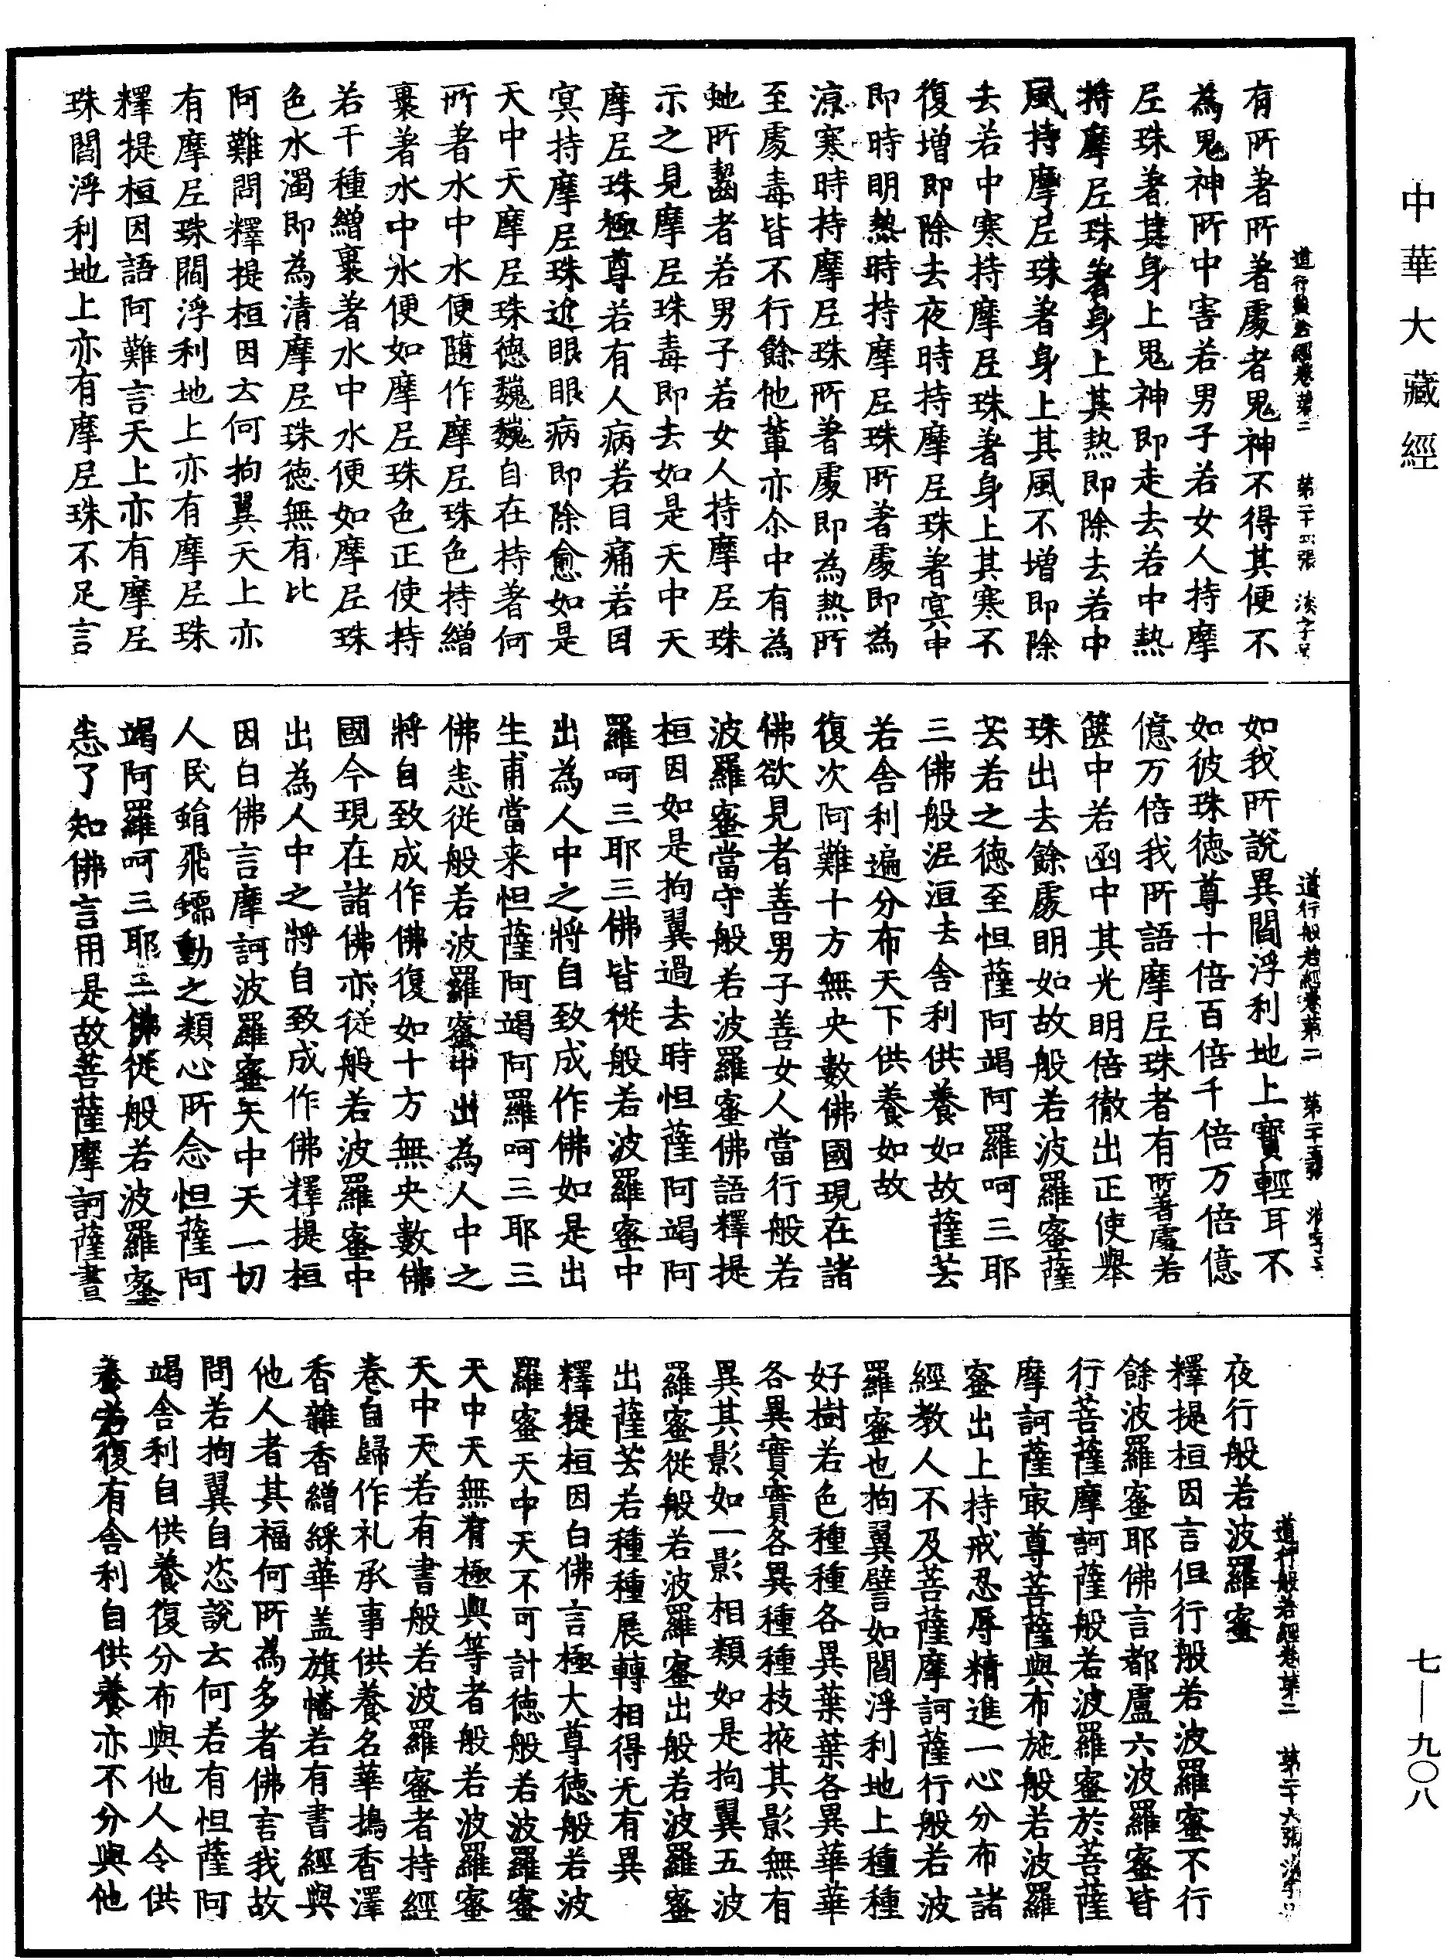 中華大藏經
七—九〇八
有所著所著處者鬼神不得其便不
為鬼神所中害若男子若女人持摩
尼珠著其身上鬼神即走去若中熱
持摩尼珠著身上其熱即除去若中
風持摩尼珠著身上其風不增即除
去若中寒持摩尼珠著身上其寒不
復增即除去夜時持摩尼珠著冥中
即時明熱時持摩尼珠所著處即為
涼寒時持摩尼珠所著處即為熱所
至處毒皆不行餘他輩亦尒中有為
虵所齧者若男子若女人持摩尼珠
示之見摩尼珠毒即去如是天中天
摩尼珠極尊若有人病若目痛若目
冥持摩尼珠近眼眼病即除愈如是
天中天摩尼珠德巍巍自在持著何
所著水中水便隨作摩尼珠色持繒
裹著水中水便如摩尼珠色正使持
若干種繒裹著水中水便如摩尼珠
色水濁即為清摩尼珠德無有比
阿難問釋提桓因云何拘翼天上亦
有摩尼珠閻浮利地上亦有摩尼珠
釋提桓因語阿難言天上亦有摩尼
珠閻浮利地上亦有摩尼珠不足言
道行般若經卷第二　第二十四張　淡字号
如我所說異閻浮利地上寶輕耳不
如彼珠德尊十倍百倍千倍万倍億
億万倍我所語摩尼珠者有所著處若
篋中若函中其光明倍徹出正使舉
珠出去餘處明如故般若波羅蜜薩
芸若之德至怛薩阿竭阿羅呵三耶
三佛般泥洹去舍利供養如故薩芸
若舍利遍分布天下供養如故
復次阿難十方無央數佛國現在諸
佛欲見者善男子善女人當行般若
波羅蜜當守般若波羅蜜佛語釋提
桓因如是拘翼過去時怛薩阿竭阿
羅呵三耶三佛皆從般若波羅蜜中
出為人中之將自致成作佛如是出
生甫當来怛薩阿竭阿羅呵三耶三
佛悉從般若波羅蜜中出為人中之
將自致成作佛復如十方無央數佛
國今現在諸佛亦從般若波羅蜜中
出為人中之將自致成作佛釋提桓
因白佛言摩訶波羅蜜天中天一切
人民蜎飛蠕動之類心所念怛薩阿
竭阿羅呵三耶三佛從般若波羅蜜
悉了知佛言用是故菩薩摩訶薩晝
道行般若經卷第二　第二十五張　淡字号
夜行般若波羅蜜
釋提桓因言但行般若波羅蜜不行
餘波羅蜜耶佛言都盧六波羅蜜皆
行菩薩摩訶薩般若波羅蜜於菩薩
摩訶薩冣尊菩薩與布施般若波羅
蜜出上持戒忍辱精進一心分布諸
經教人不及菩薩摩訶薩行般若波
羅蜜也拘翼譬如閻浮利地上種種
好樹若色種種各異葉葉各異華華
各異實實各異種種枝掖其影無有
異其影如一影相類如是拘翼五波
羅蜜從般若波羅蜜出般若波羅蜜
出薩芸若種種展轉相得无有異
釋提桓因白佛言極大尊德般若波
羅蜜天中天不可計德般若波羅蜜
天中天無有極與等者般若波羅蜜
天中天若有書般若波羅蜜者持經
卷自歸作礼承事供養名華搗香澤
香雜香繒綵華盖旗幡若有書經與
他人者其福何所為多者佛言我故
問若拘翼自恣說云何若有怛薩阿
竭舍利自供養復分布與他人令供
養若復有舍利自供養亦不分與他
道行般若經卷第二　第二十六張　淡字号